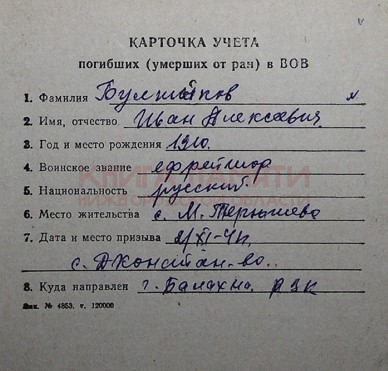 КАРТОЧКА УЧЕТА
погибших (умерших от ран) в ВОВ
1. Фамилия
2. Имя, отчество. Иван Алексевич
3. Год и место рождения 1910.
4. Воинское звание ефрейтор
КНИГА ПАМЯТИ
5. Национальность русский.
НИЖЕГОРОДСКОЙ ОБЛАСТИ
6. Место жительства с. М.
7. Дата и место призыва
с.
8. Куда направлен г. Балахна РВК
Зак. № 4853. т. 120000